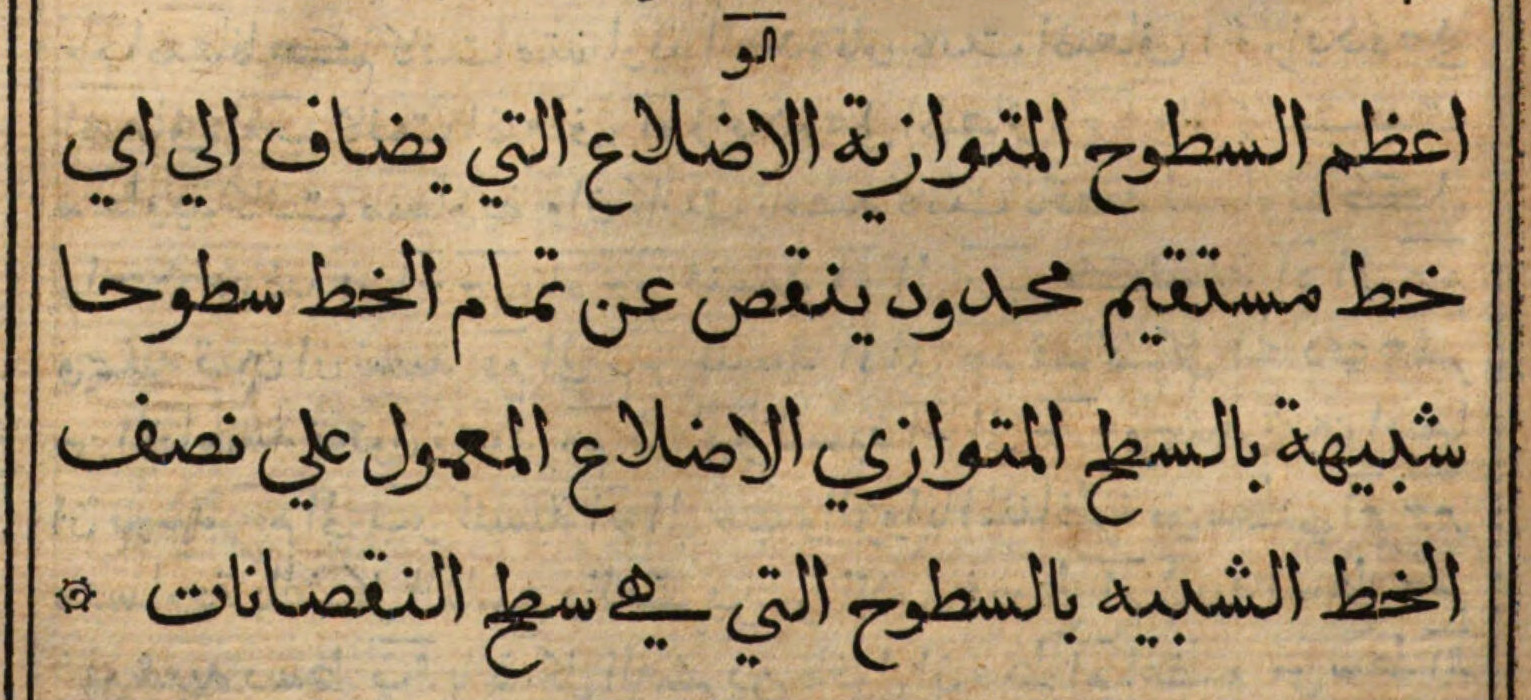 الو
اعظم السطوح المتوازية الاضلاع التي يضاف الي اي
خط مستقيم محدود ينقص عن تمام الخط سطوحا
شبيهة بالسطح المتوازي الاضلاع المعمول علي نصف
الخط الشبيه بالسطوح التي هي سطح النقصانات